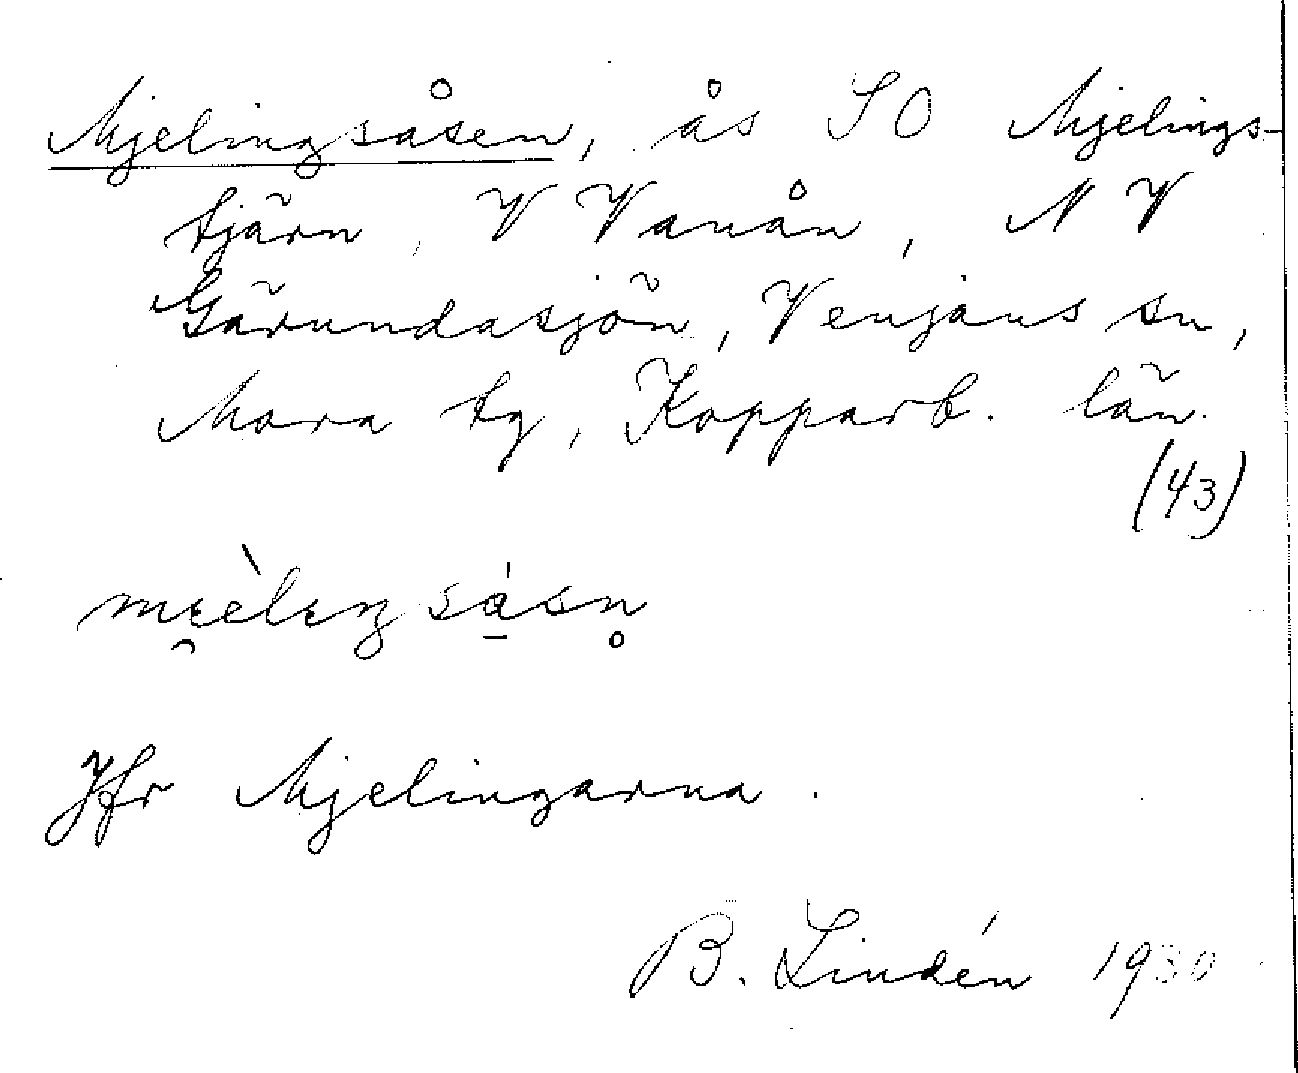 Mjelingsåsen, ås SO Mjelings-
tjärn, V Vanån, NV
Gärundasjön, Venjans sn,
Mora tg, Kopparb. län.
(43)
Jfr Mjelingarna.
B. Lindén 1930